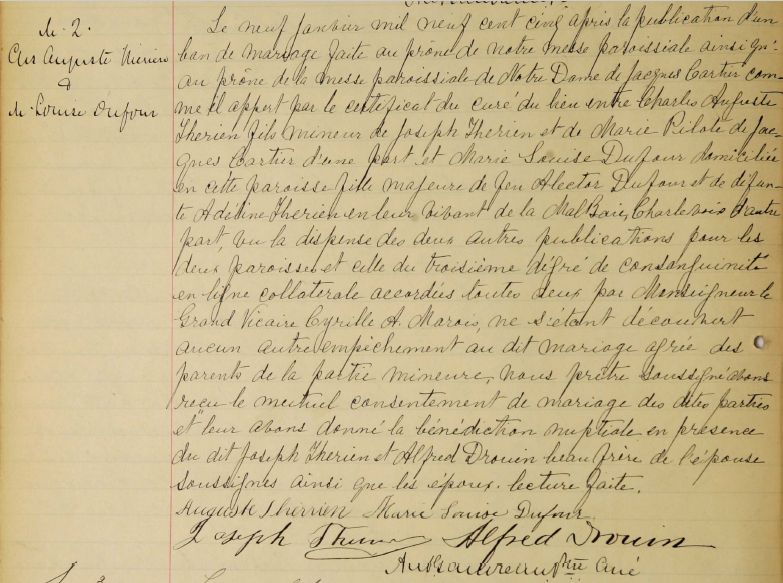 M. 2.
Chs Auguste Therien
&
M. Louise Dufour
Le neuf janvier mil neuf cent cinq après la publication d'un
ban de mariage faite au prône de notre messe paroissiale ainsi qu'
au prône de la messe paroissiale de Notre Dame de Jacques Cartier com-
me il appert par le certificat du curé du lieu entre Charles Auguste
Therien fils mineur de Joseph Therien et de Marie Pilote de Jac-
ques Cartier d'une part et Marie Louise Dufour domiciliée
en cette paroisse fille majeure de feu Alector Dufour et de défun-
te Adéline Therien en leur vivant de la Mal Baie, Charlevoix d'autre
part, vu la dispense des deux autres publications pour les
deux paroisses et celle du troisième dégré de consanguinité
en ligne collatérale accordées toutes deux par Monseigneur le
Grand Vicaire Cyrille A. Marois, ne s'étant découvert
aucun autre empêchement au dit mariage agrée des
parents de la partie mineure, nous prêtre soussigné avons
reçu le mutuel consentement de mariage des dites parties
et leur avons donné la bénédiction nuptiale en présence
du dit Joseph Therien et Alfred Drouin beau frère de l'épouse
soussignés ainsi que les époux. lecture faite.
Auguste Therrien Marie Louise Dufour
Joseph Therien Alfred Drouin
Ptre Curé